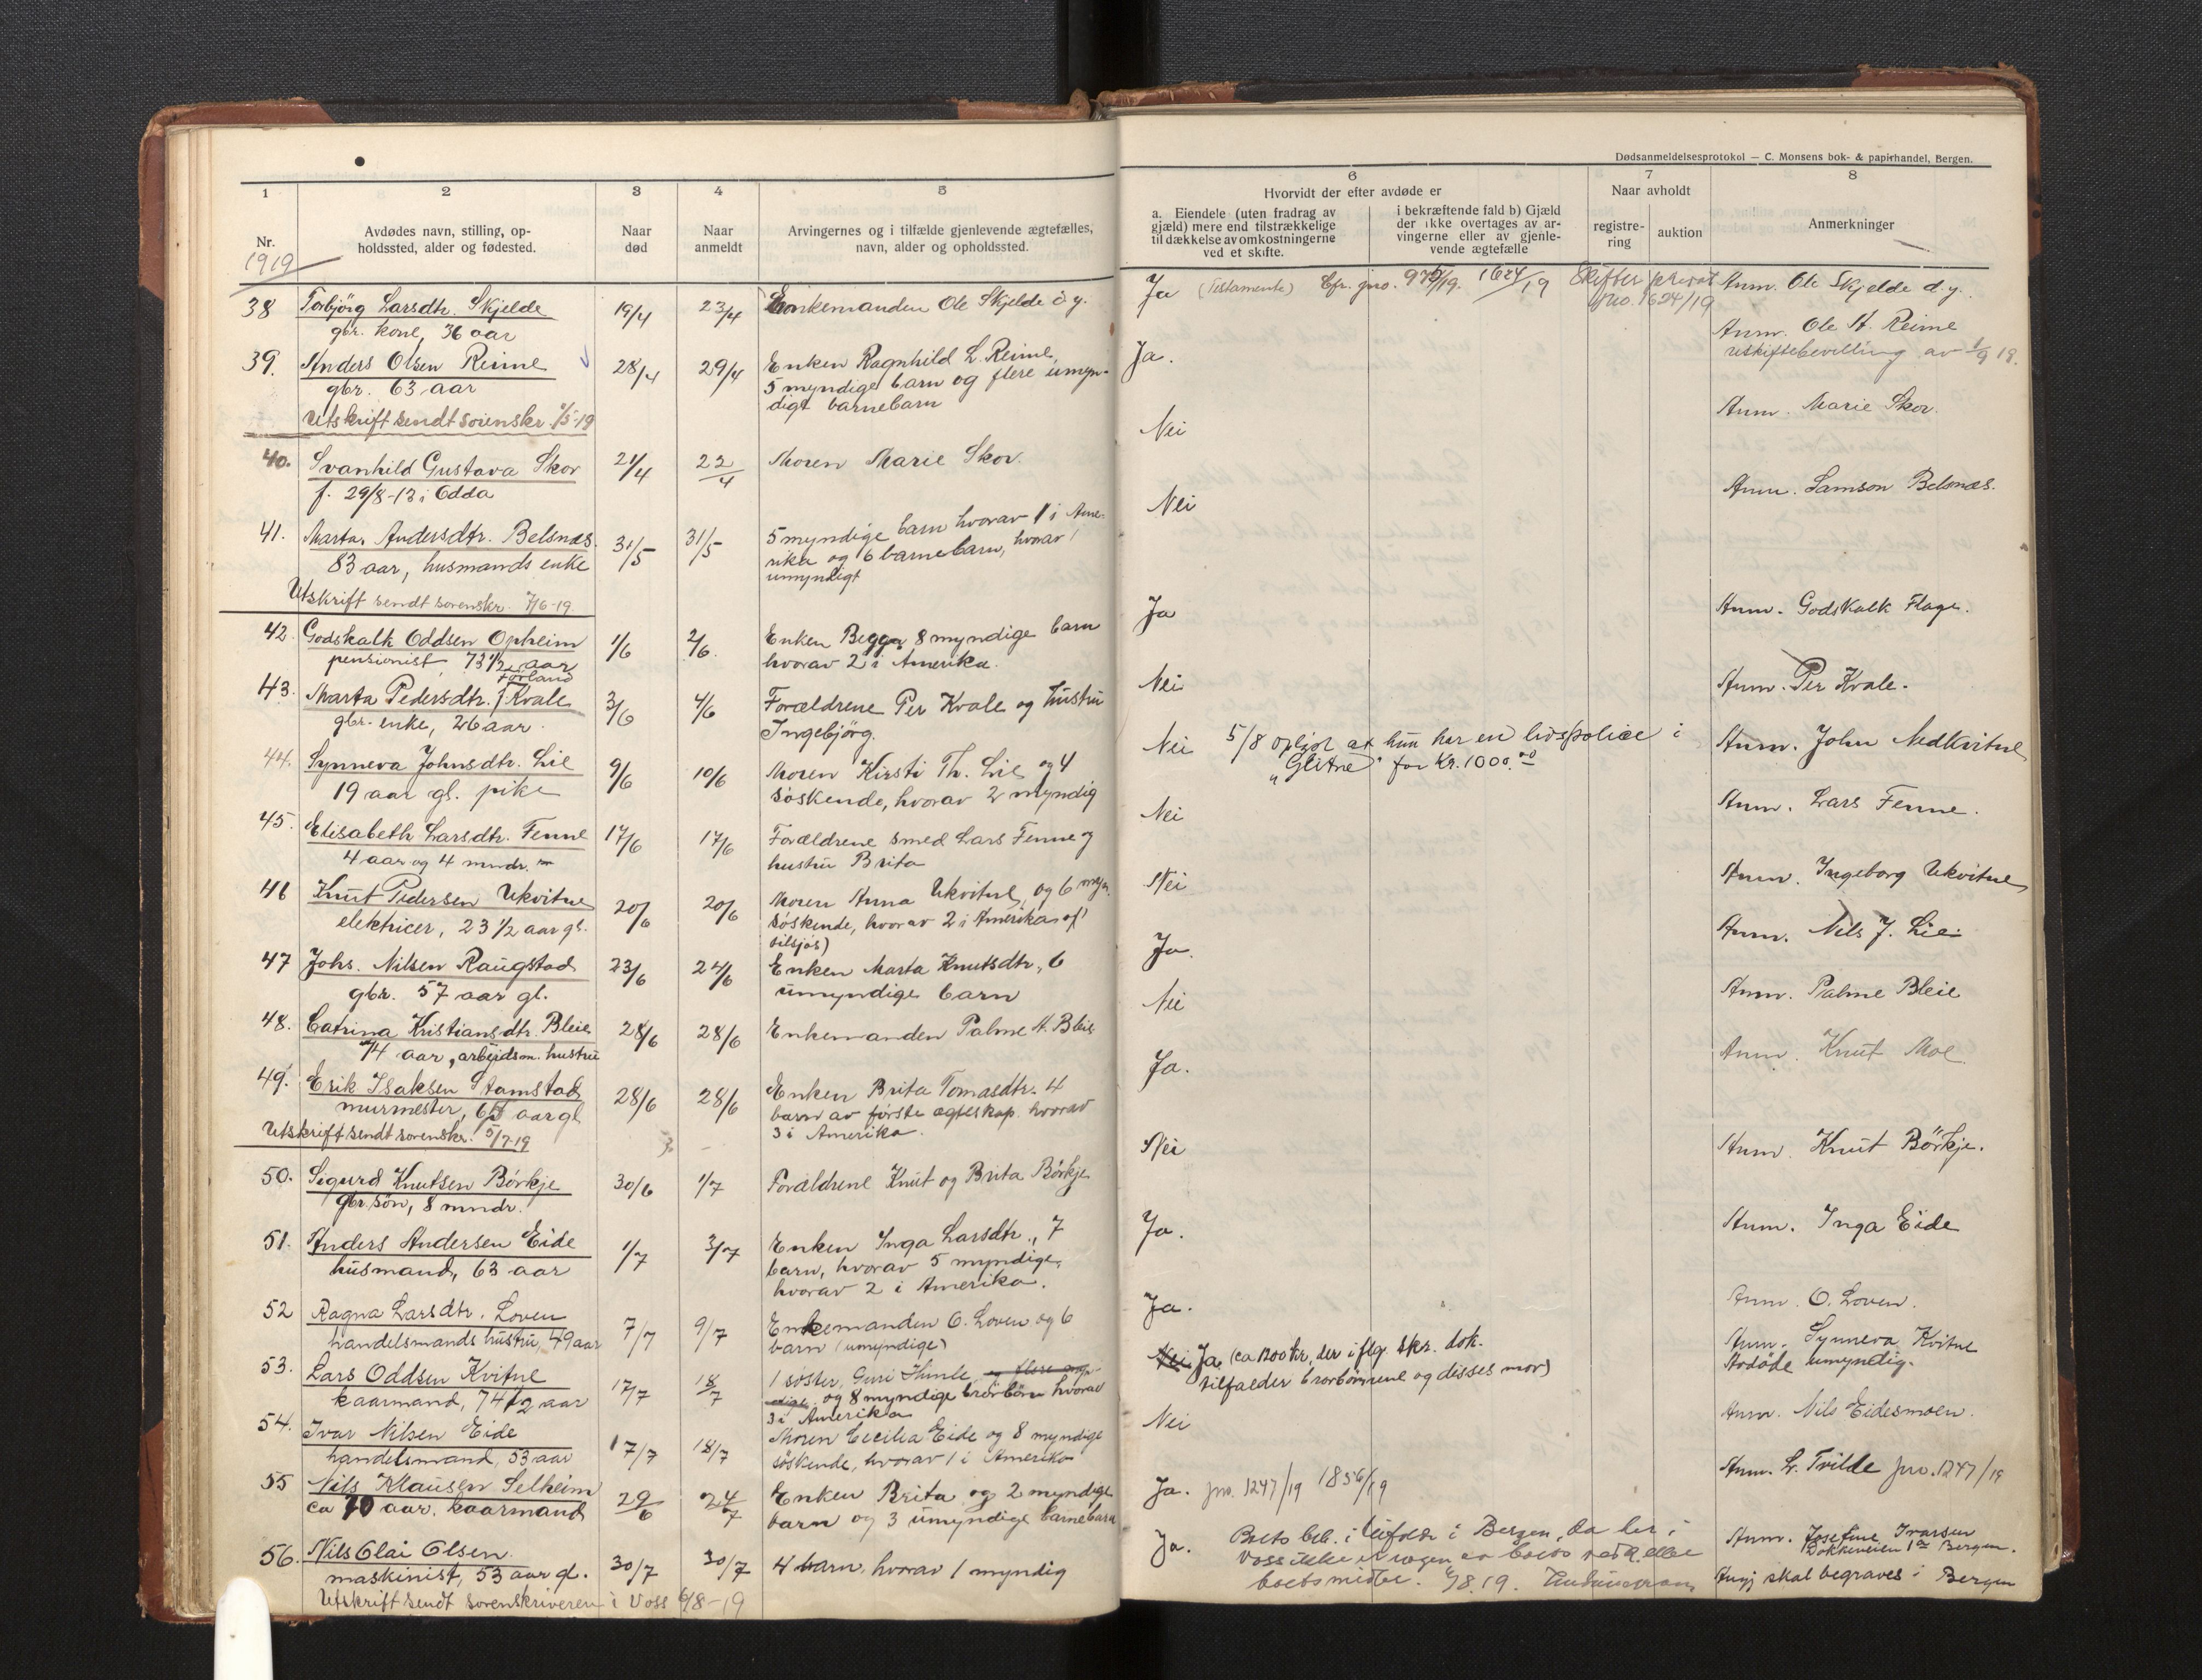 Dødsanmeldelsesprotokol — C. Monsens bok- & papirhandel, Bergen.
1 2 3 4 5
Nr. Avdødes navn, stilling, op-holdssted, alder og fødested. Naar død Naar anmeldt Arvingernes og i tilfælde gjenlevende ægtefælles, navn, alder og opholdssted.
1919
38 Torbjörg Larsdtr. Skjelde 19/4 23/4 Enkemanden Ole Skjelde d.y.
gbr. kone, 36 aar
39. Anders Olsen Reime 28/4 29/4 Enken Ragnhild L. Reime,
gbr. 63 aar 5 myndige barn og flere umyn-
digt barnebarn
Utskrift sendt sorenskr. /5-19
40. Svanhild Gustava Skor 21/4 22/4 Moren Marie Skor.
f. 29/8-13 i Odda
41. Marta Andersdtr. Belsnæs. 31/5 31/5 5 myndige barn hvorav 1 i Ame-
83 aar, husmands enke rika og 6 barnebarn, hvorav 1
umyndigt
Utskrift sendt sorenskr. 7/6-19
42. Godskalk Oddsen Opheim 1/6 2/6. Enken Begga, 8 myndige barn
pensionist 73 1/2 aar hvorav 2 i Amerika.
43. Marta Pedersdtr. Kvale 3/6 4/6 Forældrene Per Kvale og hustru
gbr. enke, 26 aar. Ingebjörg.
44. Synneva Johnsdtr. Lie 9/6 10/6 Moren Kirsti Th. Lie og 4
19 aar gl. pike söskende, hvorav 2 myndig
45. Elisabeth Larsdtr. Fenne 17/6 17/6 Forældrene smed Lars Fenne og
4 aar og 4 mndr. hustru Brita
46 Knut Pedersen Ukvitne 20/6 20/6 Moren Anna Ukvitne, og 6 myn.
elektricer, 23 1/2 aar gl. söskende, hvorav 2 i Amerika og 1
tilsjös)
47 Johs. Nilsen Raugstad 23/6 24/6 Enken Marta Knutsdtr, 6
gbr. 57 aar gl. umyndige barn
48. Catrina Kristiansdtr. Bleie 28/6 28/6 Enkemanden Palme A. Bleie
74 aar, arbeidsm. hustru
49. Erik Isaksen Stamstad 28/6 28/6 Enken Brita Tomasdtr. 4
murmester, aar gl barn av første ægteskap, hvorav
3 i Amerika.
Utskrift sendt sorenskr. 5/7-19
50. Sigurd Knutsen Börkje 30/6 1/7 Forældrene Knut og Brita Börkje
gbr. sön, 8 mndr.
51. Anders Andersen Eide 1/7 3/7 Enken Inga Larsdtr., 7
husmand, 63 aar barn, hvorav 5 myndige,
hvorav 2 i Amerika.
52 Ragna Larsdtr. Loven 7/7 9/7 Enkemanden O. Loven og 6
handelsmands hustru, 49 aar barn (umyndige)
53. Lars Oddsen Kvitne 17/7 18/7 1 søster, Guri Humle, og flere myn-
kaarmand, 74 1/2 aar dige, og 8 myndige brorbörn hvorav
3 i Amerika
54. Ivar Nilsen Eide 17/7 18/7 Moren Cecilia Eide og 8 myndige
handelsmand, 53 aar söskende, hvorav 1 i Amerika
55 Nils Klausen Selheim 29/6 24/7 Enken Brita og 2 myndige
ca 70 aar. kaarmand barn og 3 umyndige barnebarn
56. Nils Olai Olsen 30/7 30/7 4 barn, hvorav 1 myndig
maskinist, 53 aar gl.
Utskrift sendt sorenskriveren i Voss 6/8-19
6 7 8
Hvorvidt der efter avdøde er Naar avholdt
a. Eiendele (uten fradrag av gjæld) mere end tilstrækkelige til dækkelse av omkostningerne ved et skifte. i bekræftende fald b) Gjæld der ikke overtages av ar-vingerne eller av gjenle-vende ægtefælle registre-ring auktion Anmerkninger
Ja (Testamente) Cfr. jno. 975/19. 1624/19 Skifter privat Anm. Ole Skjelde d.y.
jno. 1624/19
Ja. Anm. Ole A. Reime
uskiftebevilling av 1/9 19.
Nei Anm. Marie Skor.
Nei Anm. Samson Belsnæs.
Ja Anm. Godskalk Flage.
Nei Anm. Per Kvale.
Nei 5/8 oplyst at hun har en livspolice i Anm. John Nedkvitne
"Gleitne" for Kr. 1000.00
Nei Anm. Lars Fenne.
Nei Anm. Ingeborg Ukvitne
Ja. Anm. Nils J. Lie
Nei Anm. Palme Bleie
Ja. Anm. Knut Moe
Nei Anm. Knut Börkje.
Ja. Anm. Inga Eide
Ja. Anm. O. Loven.
Nei Ja (ca 1200 kr, der iflg. skr. dok. Anm. Synneva Kvitne
tilfalder brorbörnene og disses mor) Avdöde umyndig.
Nei Anm. Nils Eidesmoen.
Ja. jno. 1247/19 1856/19 Anm. L. Tvilde jno. 1247/19
Ja. Boets beh. i Bergen, da her i Anm. Josefine Ivarsen
Voss ikke er nogen av boets eller Dokkeveien 1a Bergen.
boets midler. 6/8.19. Angj skal begraves i Bergen